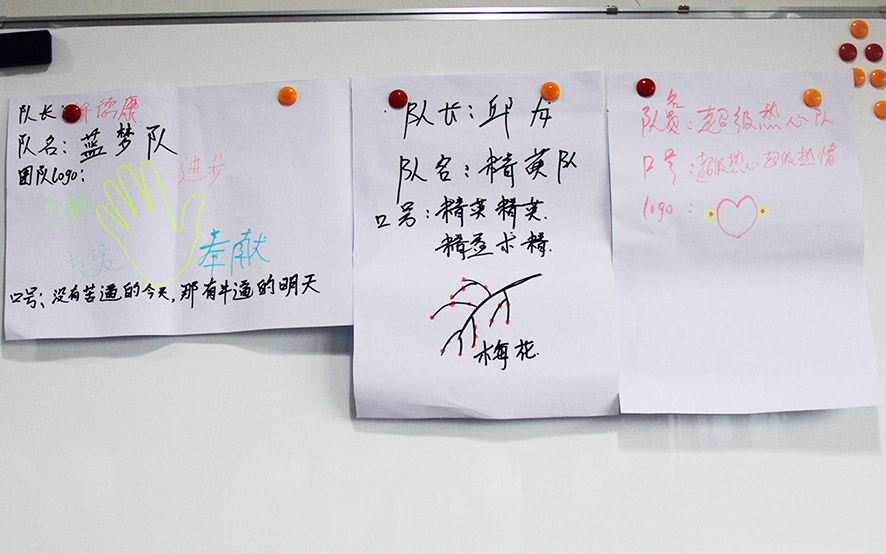 队长：
队名：蓝梦队
团队logo：
进步
奉献
口号：没有苦逼的今天，那有牛逼的明天
队长：邱龙
队名：精英队
口号：精英精英
精益求精
梅花
队名：超级热心队
口号：超级热心超级热情
logo：